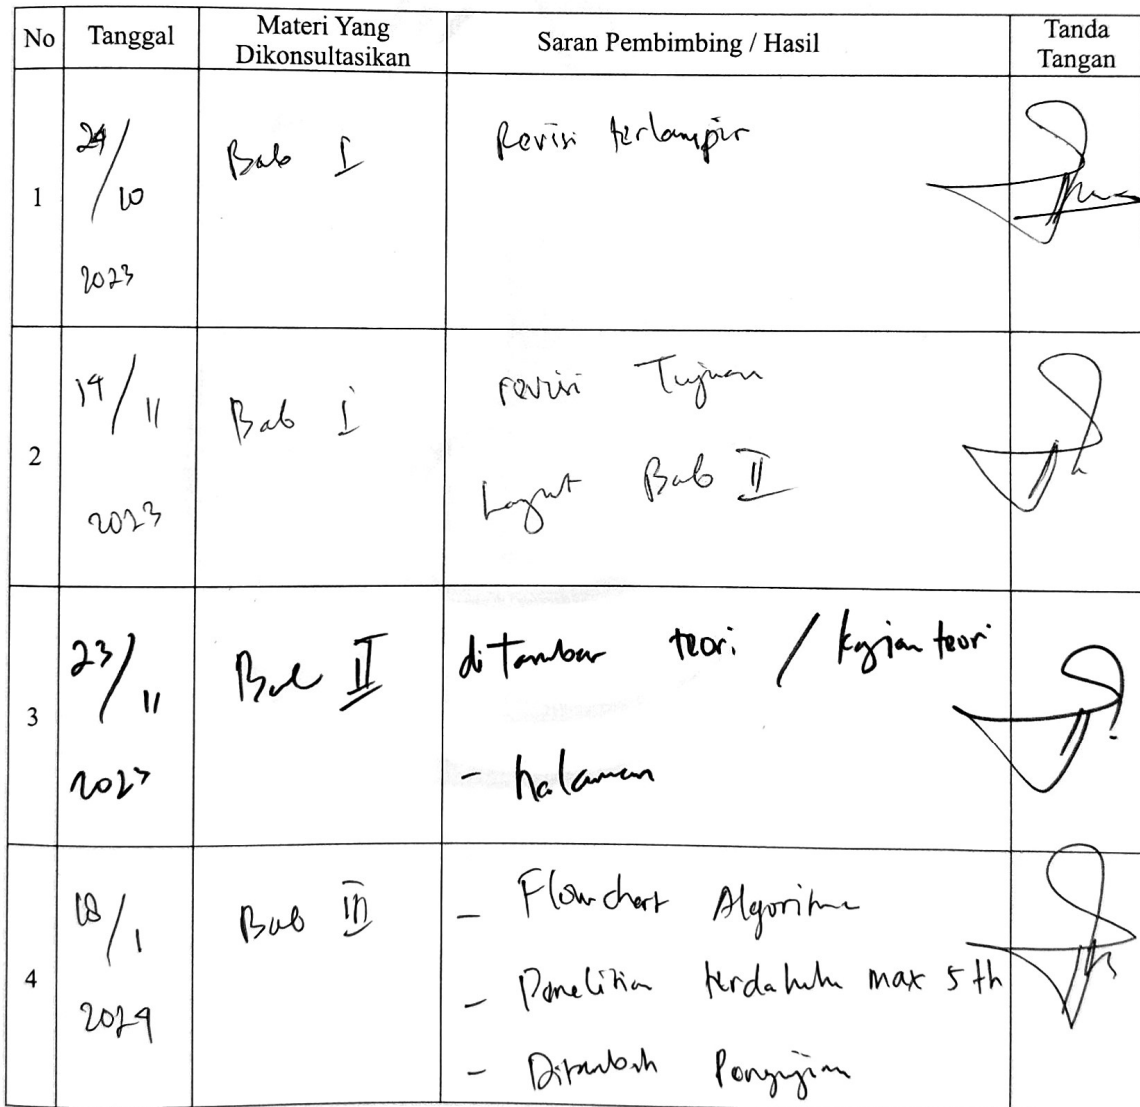 No Tanggal Materi Yang Dikonsultasikan Saran Pembimbing / Hasil Tanda Tangan
1
24/10
2023
Bab I
Revisi terlampir
2
14/11
2023
Bab I
revisi Tujuan
Lanjut Bab II
3
23/11
2023
Bab II
ditambah teori / kajian teori
- halaman
4
18/1
2024
Bab III
- Flowchart Algoritma
- Penelitian terdahulu max 5 th
- Ditambah Pengujian